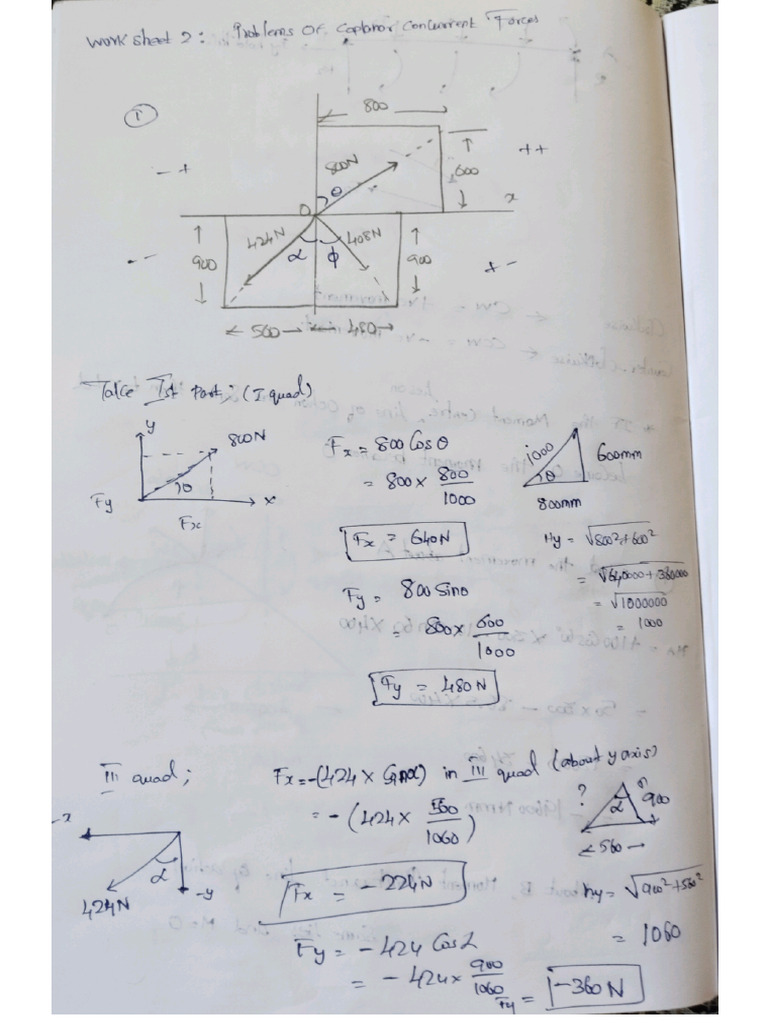 Work sheet 2: Problems Of Coplanar Concurrent Forces
①
800
- +
800N
θ
600
+ +
O
x
424N
408N
900
α
φ
900
- -
+ -
560
480
Take Ist Part; (I quad)
y
800N
θ
Fy
x
Fx
Fx = 800 Cosθ
= 800 × 800/1000
Fx = 640N
1000
600mm
θ
800mm
Hy = √800²+600²
= √640000+360000
= √1000000
= 1000
Fy = 800 Sinθ
= 800 × 600/1000
Fy = 480N
III quad;
Fx = -(424 × Sinα) in III quad (about y axis)
= -(424 × 560/1060)
Fx = -224N
-x
α
424N
-y
?
α
900
560
hy = √900²+560²
= 1060
Fy = -424 Cosα
= -424 × 900/1060
Fy = -360N